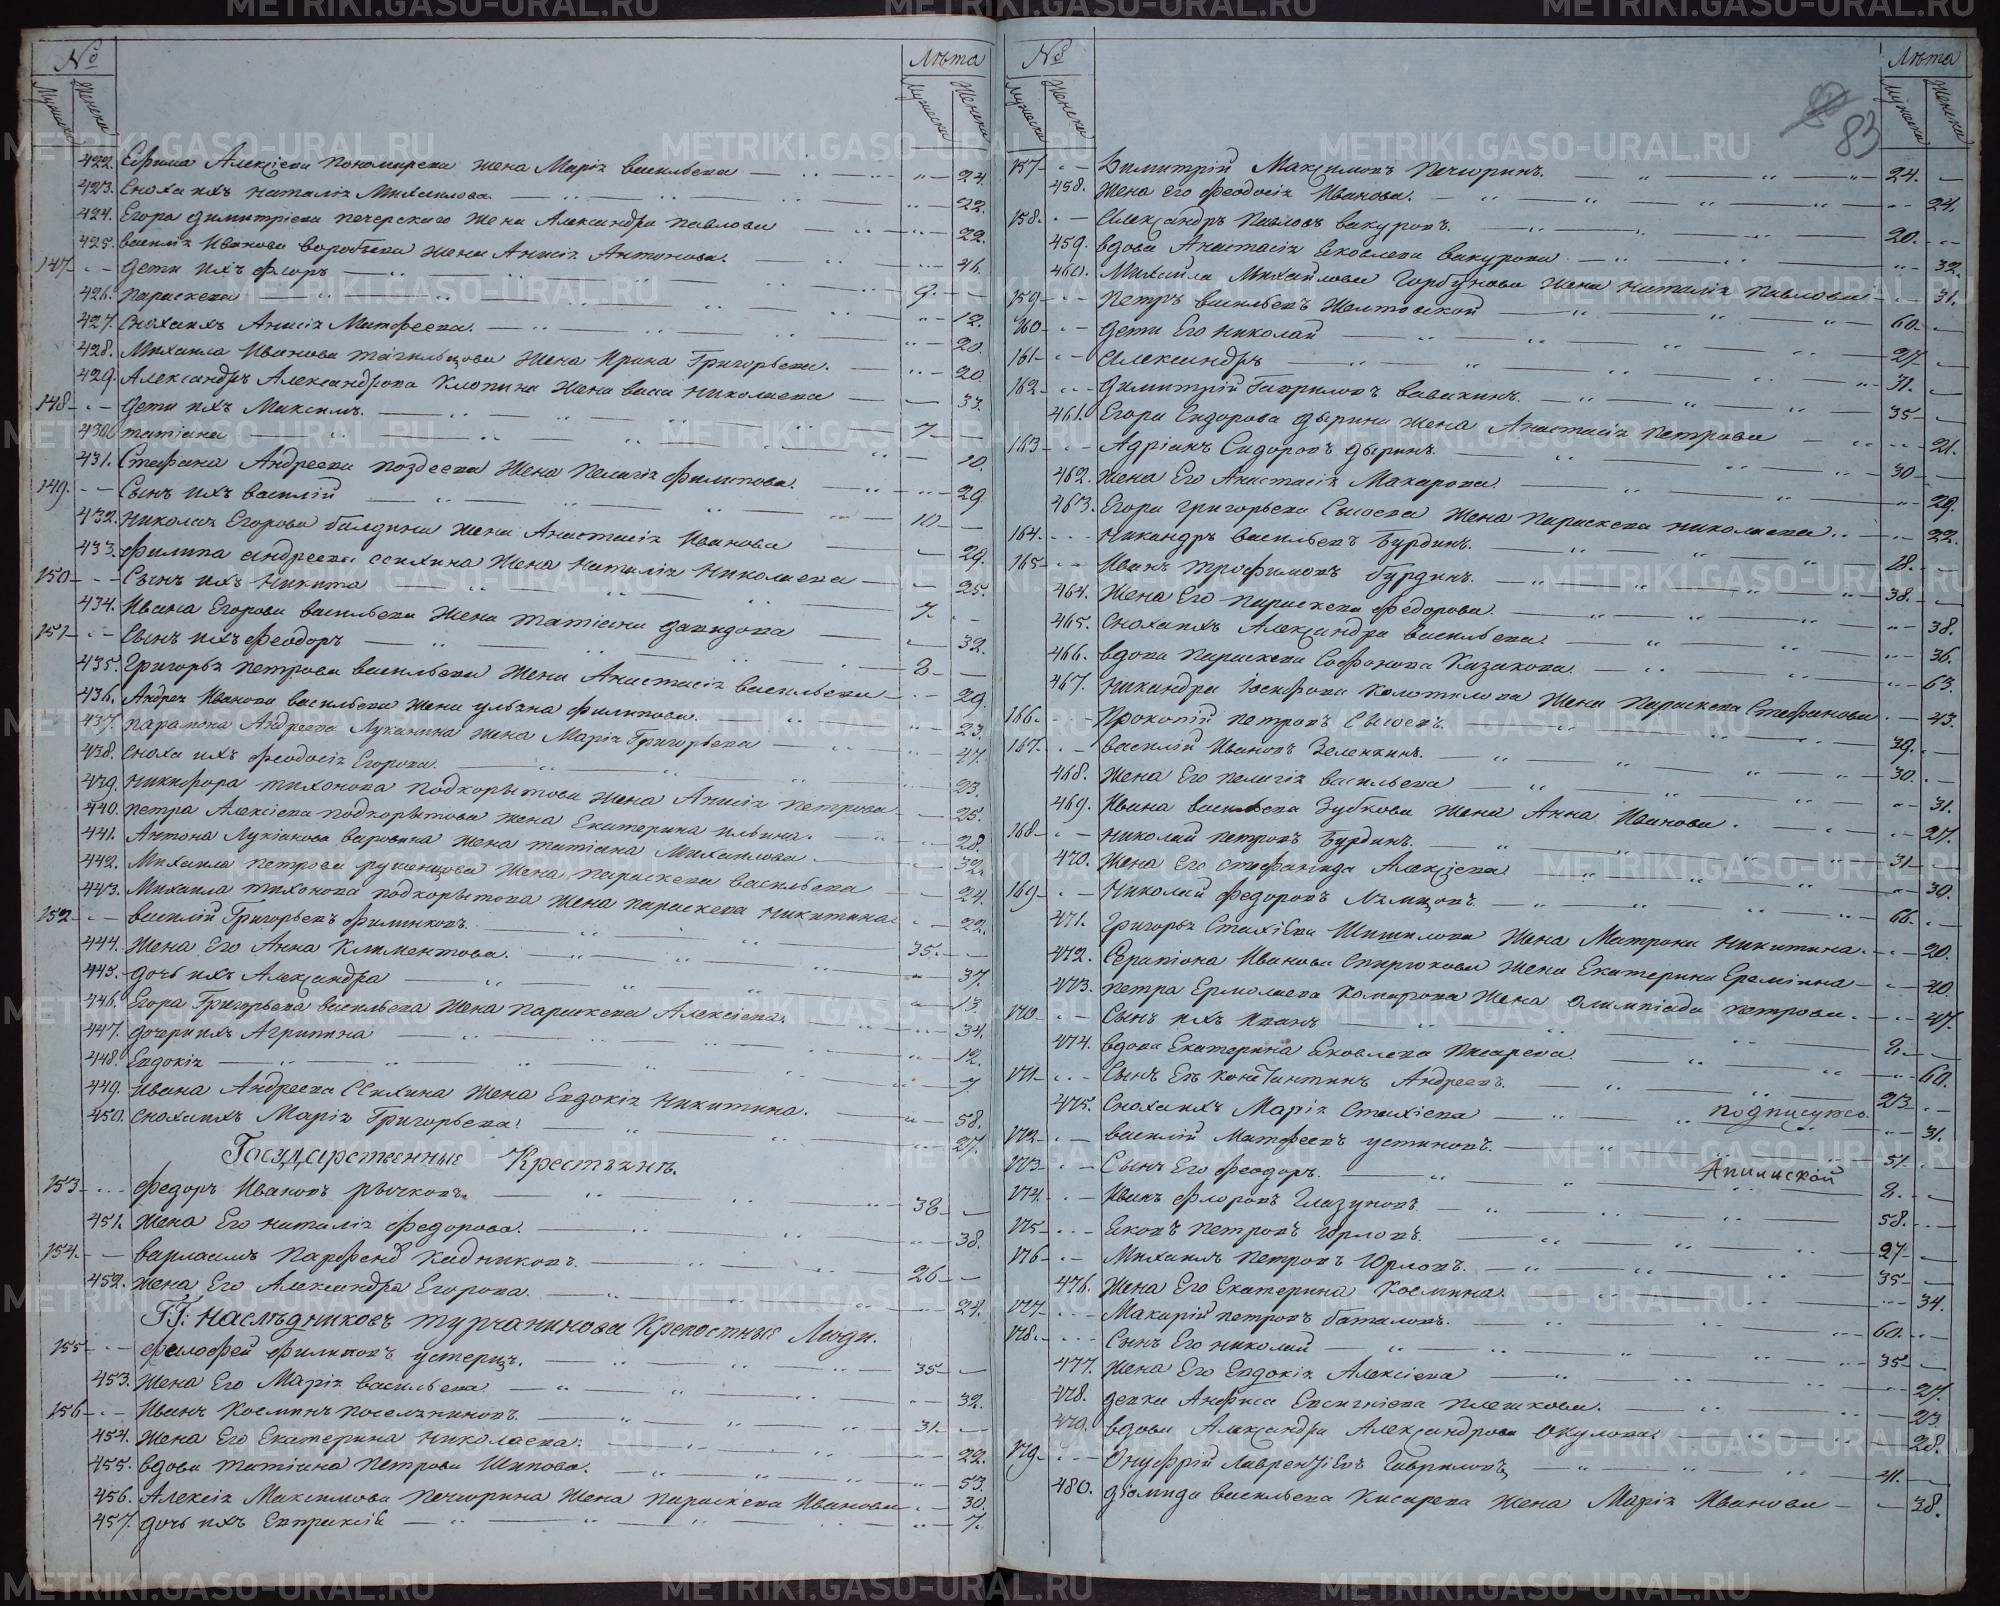 № Лѣта
Мужеска Женска Мужеска Женска
422. Ефима Алексіева Пономарева жена Марія Васильева 24.
423. Сноха ихъ Наталія Михаилова 22.
424. Егора Димитріева Печерскаго жена Александра Павлова 22.
425. Василія Иванова Воробьева жена Анисія Антонова 46.
147 Дети ихъ Флоръ 9.
426. Параскева 12.
427. Сноха ихъ Анисія Матфеева 20.
428. Михаила Иванова Тагильцова жена Ирина Григорьева 20.
429. Александръ Александрова Клопина жена Васса Николаева 33.
148 Дети ихъ Максимъ 7
430. Татіана 10.
431. Стефана Андреева Поздеева жена Пелагія Филипова 29
149. Сынъ ихъ Василій 10
432. Николая Егорова Балдина жена Анастасія Иванова 29.
433. Филипа Андреева жена Наталія Николаева 25.
150 Сынъ ихъ Никита 7.
434. Ивана Егорова Васильева жена Татіана Давидова 32.
151 Сынъ ихъ Феодоръ 2.
435. Григорья Петрова Васильева жена Анастасія Васильева 29.
436. Андрея Иванова Васильева жена Ульяна Филипова 23.
437. Парамона Андреева Луканина жена Марія Григорьева 47.
438. Сноха ихъ Феодосія Егорова. 23.
439. Никифора Тихонова Подкорытова жена Анисія Петрова 25.
440. Петра Алексіева Подкорытова жена Екатерина Ильина. 28.
441. Антона Лукіанова Варовина жена Татіана Михаилова 32.
442. Михаила Петрова Руженцова жена Параскева Васильева 24.
443. Михаила Тихонова Подкорытова жена Параскева Никитина 22.
152 Василій Григорьевъ Филинковъ. 35.
444. Жена Его Анна Климентова. 37.
445. Дочь ихъ Александра 13.
446. Егора Григорьева Васильева жена Параскева Алексіева. 34.
447. Дочери ихъ Агрипина 12.
448. Евдокія 7.
449. Ивана Андреева жена Евдокія Никитина. 58.
450. Сноха ихъ Марія Григорьева. 27.
Государственные Крестьяне.
153 Федоръ Ивановъ Рычковъ. 38
451. Жена Его Наталія Федорова. 38.
154. Варлаамъ Парфеновъ Кадниковъ. 26
452. Жена Его Александра Егорова. 24.
Г.Г: Наслѣдниковъ Турчанинова Крепостные Люди.
155 Филофей Филиповъ Устерицъ. 35
453. Жена Его Марія Васильева. 32.
156 Иванъ Косминъ Посельниковъ. 31.
454. Жена Его Екатерина Николаева. 22.
455. Вдова Татіана Петрова Шипова. 53.
456. Алексія Максимова Печюрина жена Параскева Иванова 30.
457. Дочь ихъ Евпраксія 7.
№ Лѣта
Мужеска Женска Мужеска Женска
83
157 Димитрій Максимовъ Печюринъ. 24.
458. Жена Его Феодосія Иванова. 24.
158. Александръ Павловъ Вакуровъ. 20.
459. Вдова Анастасія Яковлева Вакурова 32.
460. Михаила Михаилова Горбунова жена Наталія Павлова 31.
159 Петръ Васильевъ Желтовской 60.
160 Дети Его Николай 27
161 Александръ 31.
162 Димитрій Гавриловъ Вавакинъ. 35
461. Егора Сидорова Дырина жена Анастасія Петрова 21.
163 Адріанъ Сидоровъ Дыринъ. 30
462. Жена Его Анастасія Макарова 29.
463. Егора Григорьева Сысоева жена Параскева Николаева 22.
164. Никандръ Васильевъ Бурдинъ. 28.
165 Иванъ Трофимовъ Бурдинъ. 38.
464. Жена Его Параскева Федорова. 38.
465. Сноха ихъ Александра Васильева. 36.
466. Вдова Параскева Софонова Казакова. 63.
467. Никандра Іосифова Колотилова жена Параскева Стефанова 43.
166 Прокопій Петровъ Сысоевъ. 39.
167. Василій Ивановъ Зеленкинъ. 30.
468. Жена Его Пелагія Васильева 31.
469. Ивана Васильева Зубкова жена Анна Иванова. 27.
168 Николай Петровъ Бурдинъ. 31
470. Жена Его Стефанида Алексіева 30.
169 Николай Федоровъ Нѣмцовъ. 66.
471. Григорья Стахіева Шипилова жена Матрона Никитина. 20.
472. Серапіона Иванова Спирюкова жена Екатерина Ереміина 40.
473. Петра Ермолаева Комарова жена Олимпіада Петрова. 47.
170 Сынъ ихъ Иванъ 2.
474. Вдова Екатерина Яковлева Писарева. 60.
171 Сынъ Ея Константинъ Андреевъ. 23
475. Сноха ихъ Марія Стахіева 31.
подписуюсь
172 Василій Матфеевъ Устиновъ. 51
173 Сынъ Его Феодоръ. 2.
174. Иванъ Флоровъ Глазуновъ 58.
175 Яковъ Петровъ Юрловъ. 27
176 Михаилъ Петровъ Юрловъ. 35
476. Жена Его Екатерина Космина. 34.
177. Макарій Петровъ Баталовъ. 60.
178. Сынъ Его Николай 35
477. Жена Его Евдокія Алексіева 27.
478. Девка Анфиса Евсигніева Плешкова. 23
479. Вдова Александра Александрова Окулова. 28.
179 Онуфрій Лаврентіевъ Гавриловъ 41.
480. Діомида Васильева Кисарева жена Марія Иванова 38.
METRIKI.GASO-URAL.RU